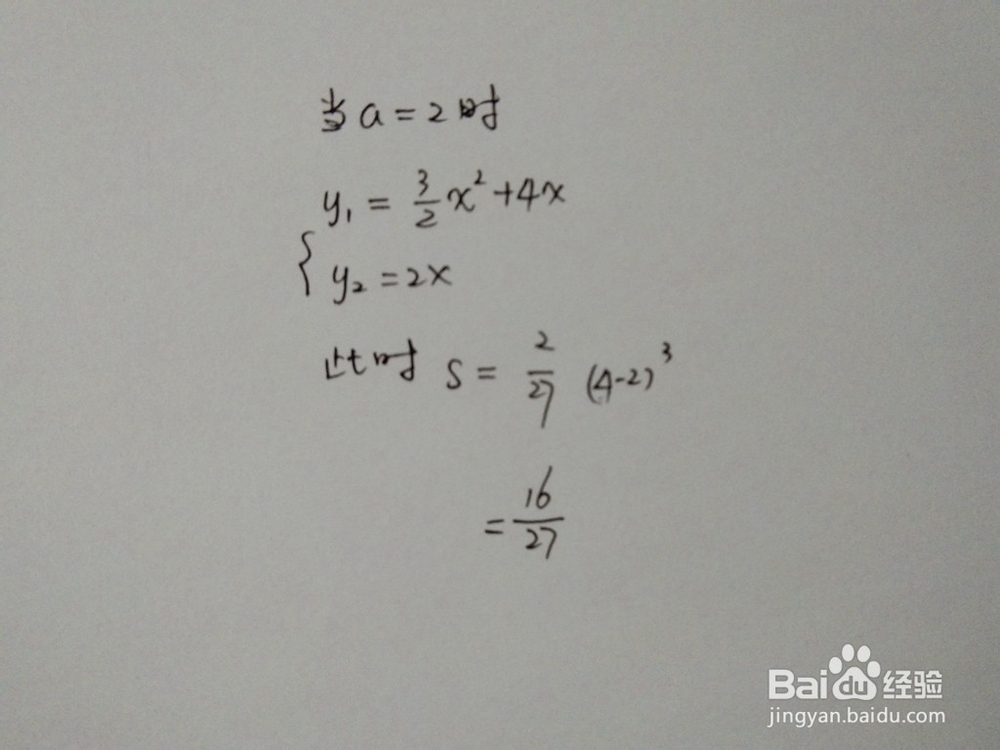 当a=2时
y₁ = 3/2 x² + 4x
y₂ = 2x
此时 S = 2/27 (4-2)³
= 16/27
Baidu经验
jingyan.baidu.com